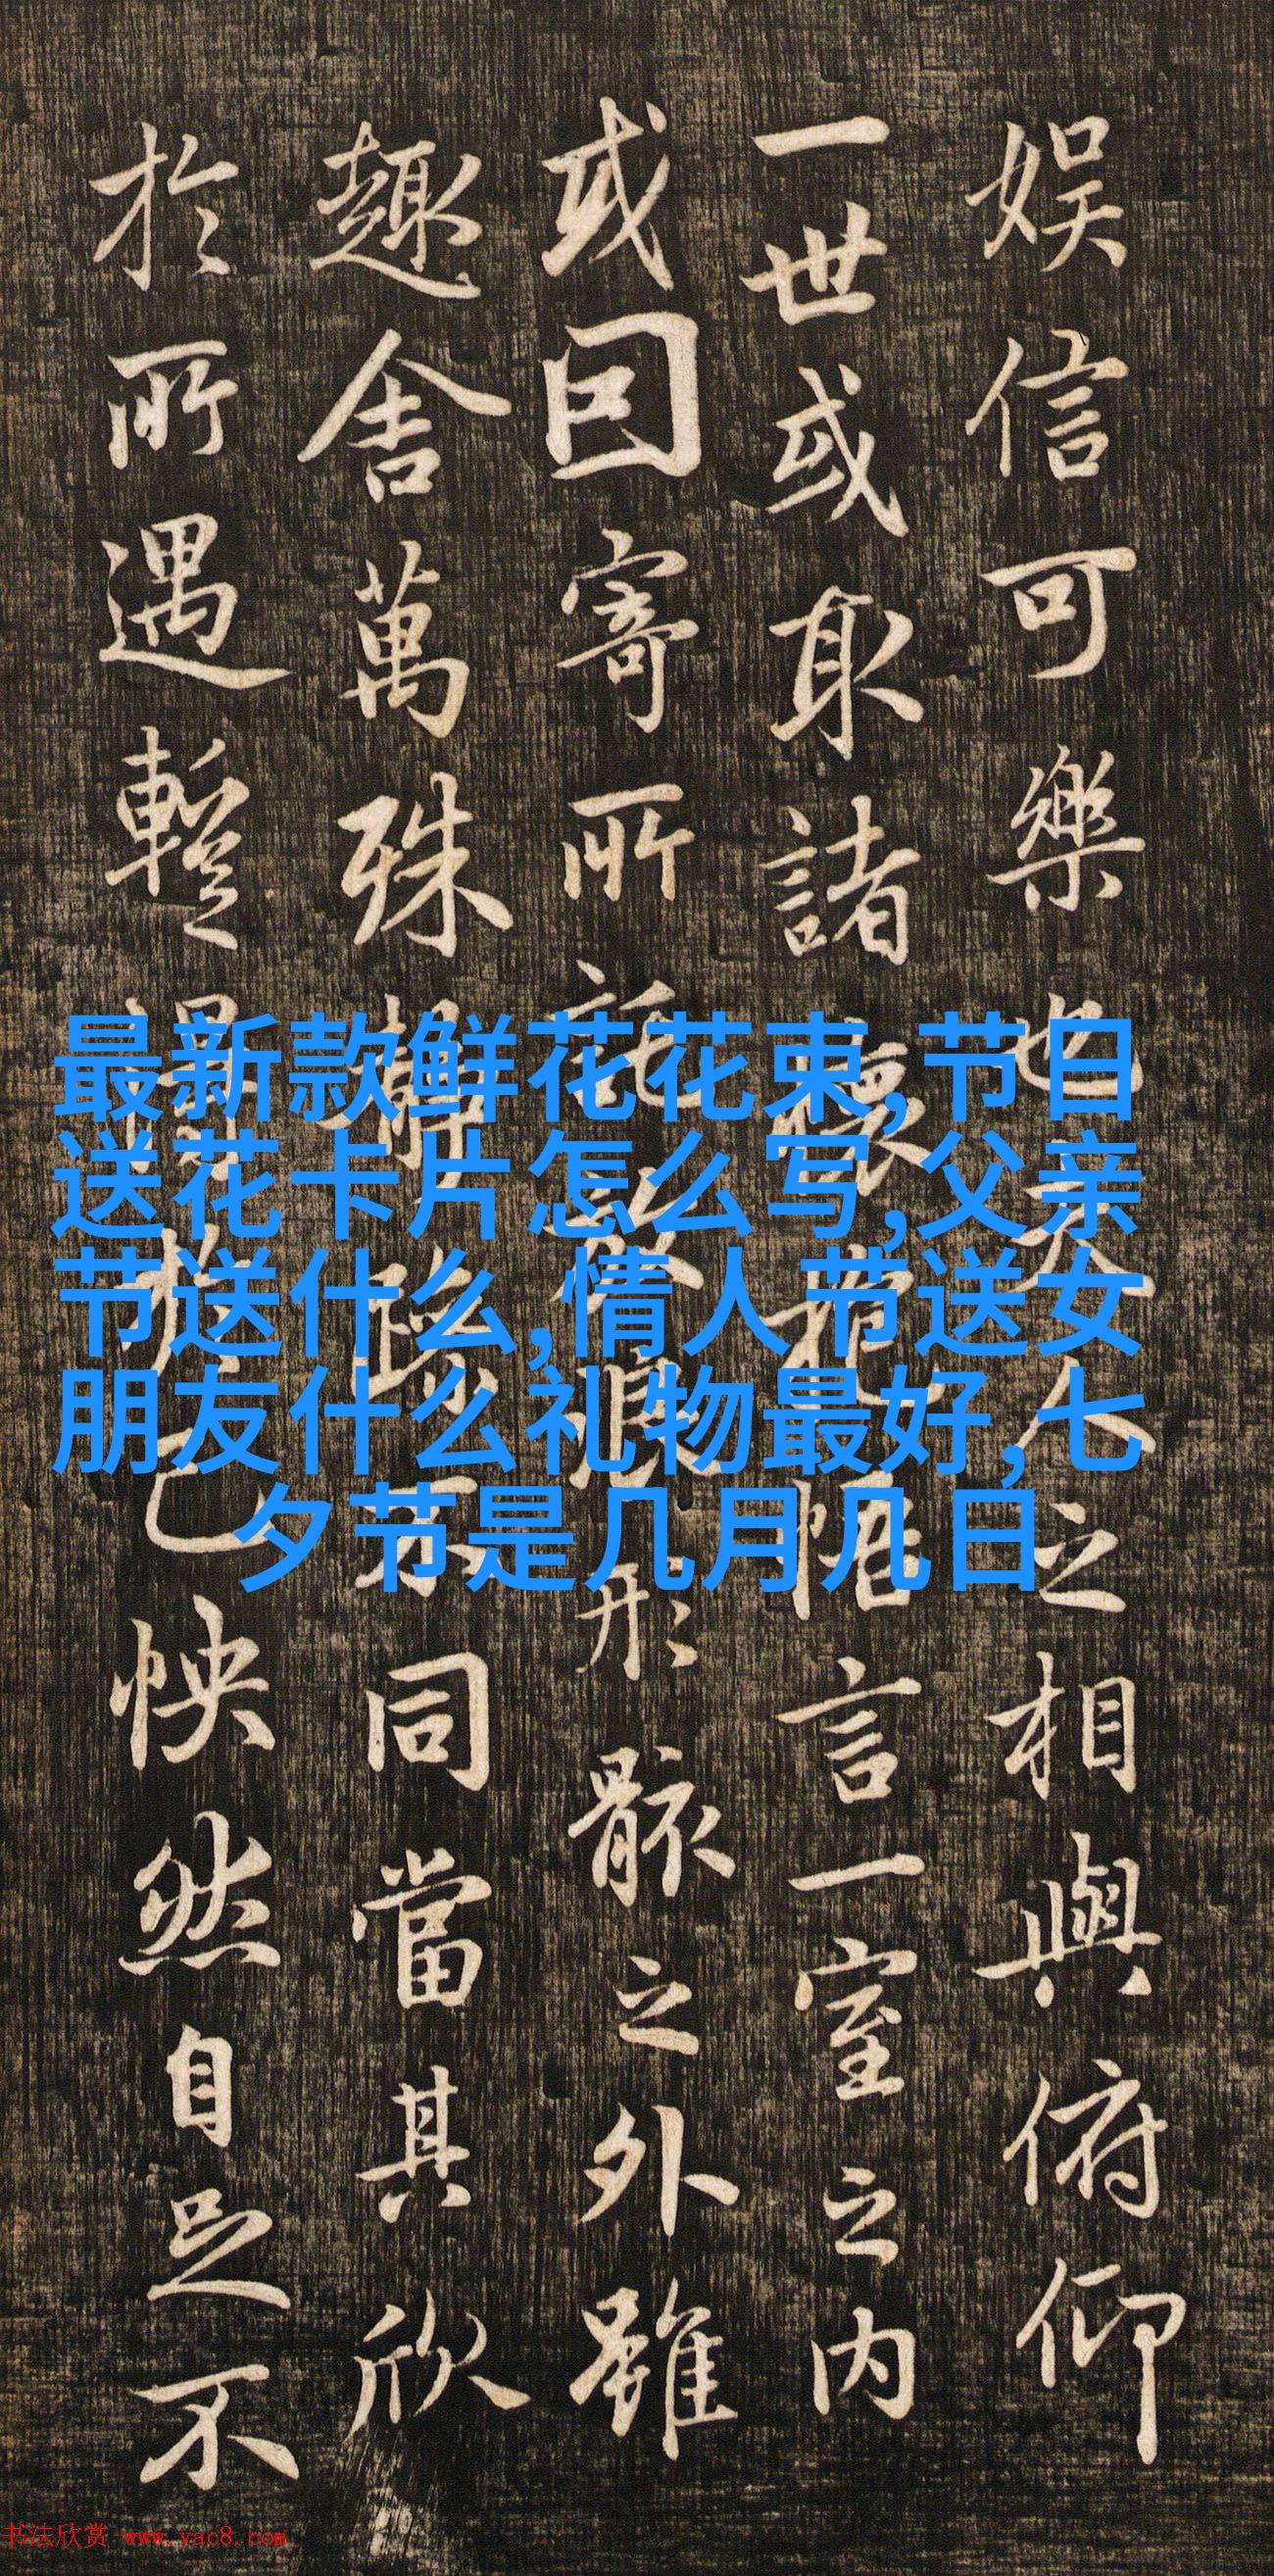 娱信可樂也夫人之相與俯仰
一世或取諸懷抱悟言一室之内
或因寄所託放浪形骸之外雖
趣舍萬殊靜躁不同當其欣
於所遇暫得於己怏然自足不
最新款鲜花花束,节日
送花卡片怎么写,父亲
节送什么,情人节送女
朋友什么礼物最好,七
夕节是几月几日
书法欣赏 www.yac8.com